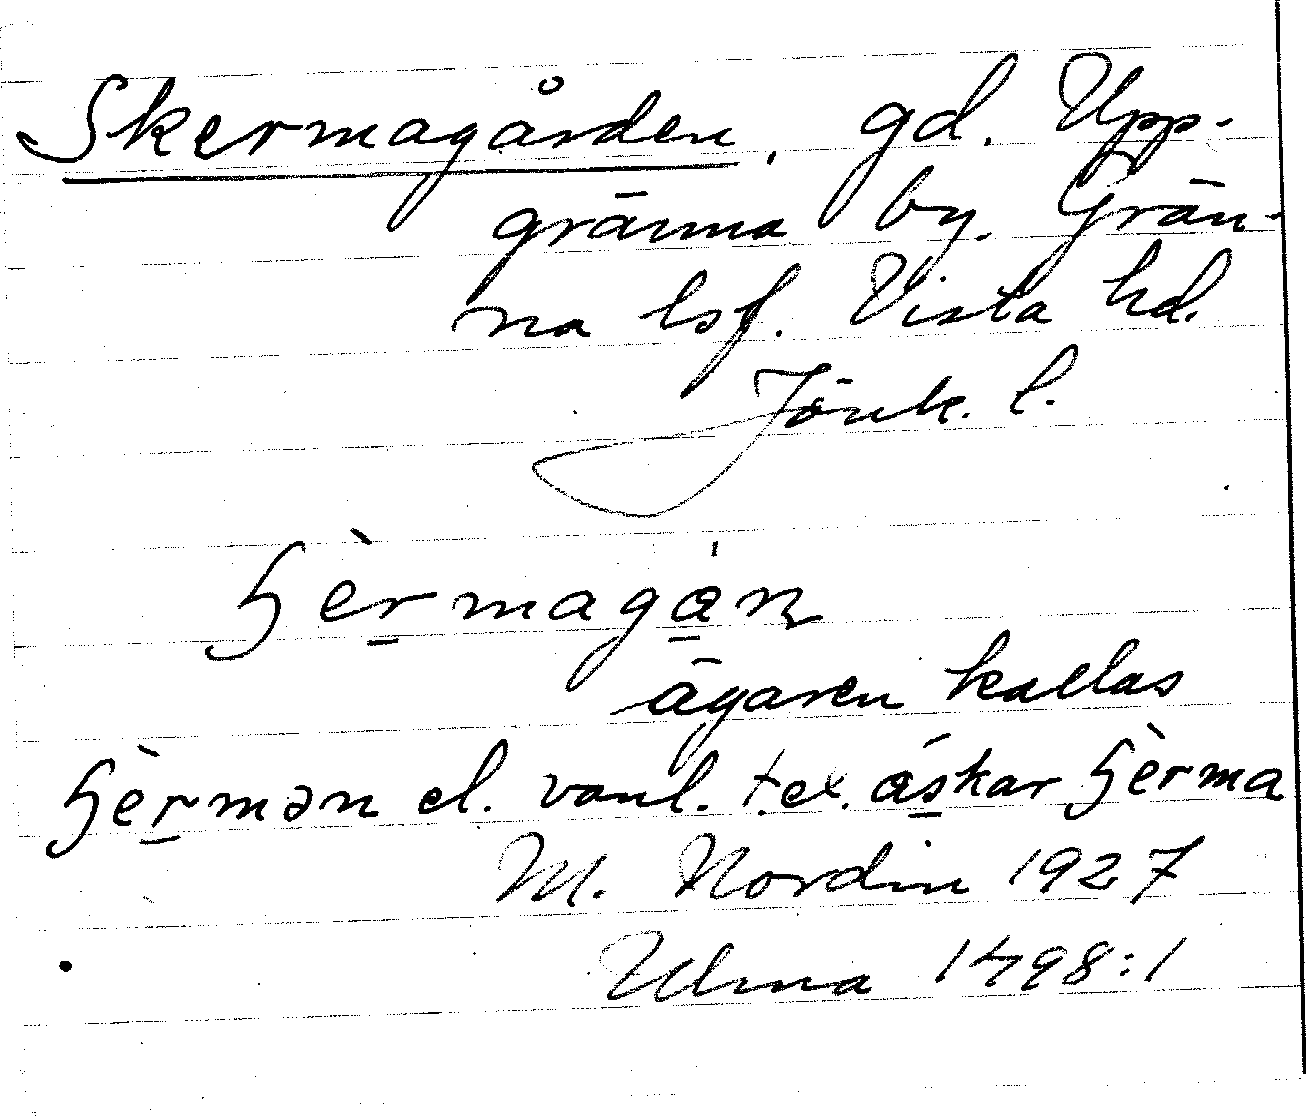 Skermagården, gd. Upp-
gränna by. Grän-
na lsf. Vista hd.
Jönk. l.
ɧèrmagan
ägaren kallas
ɧèrmən el. vanl. t.ex. áskar ɧèrma
M. Nordin 1927
Ulma 1498:1